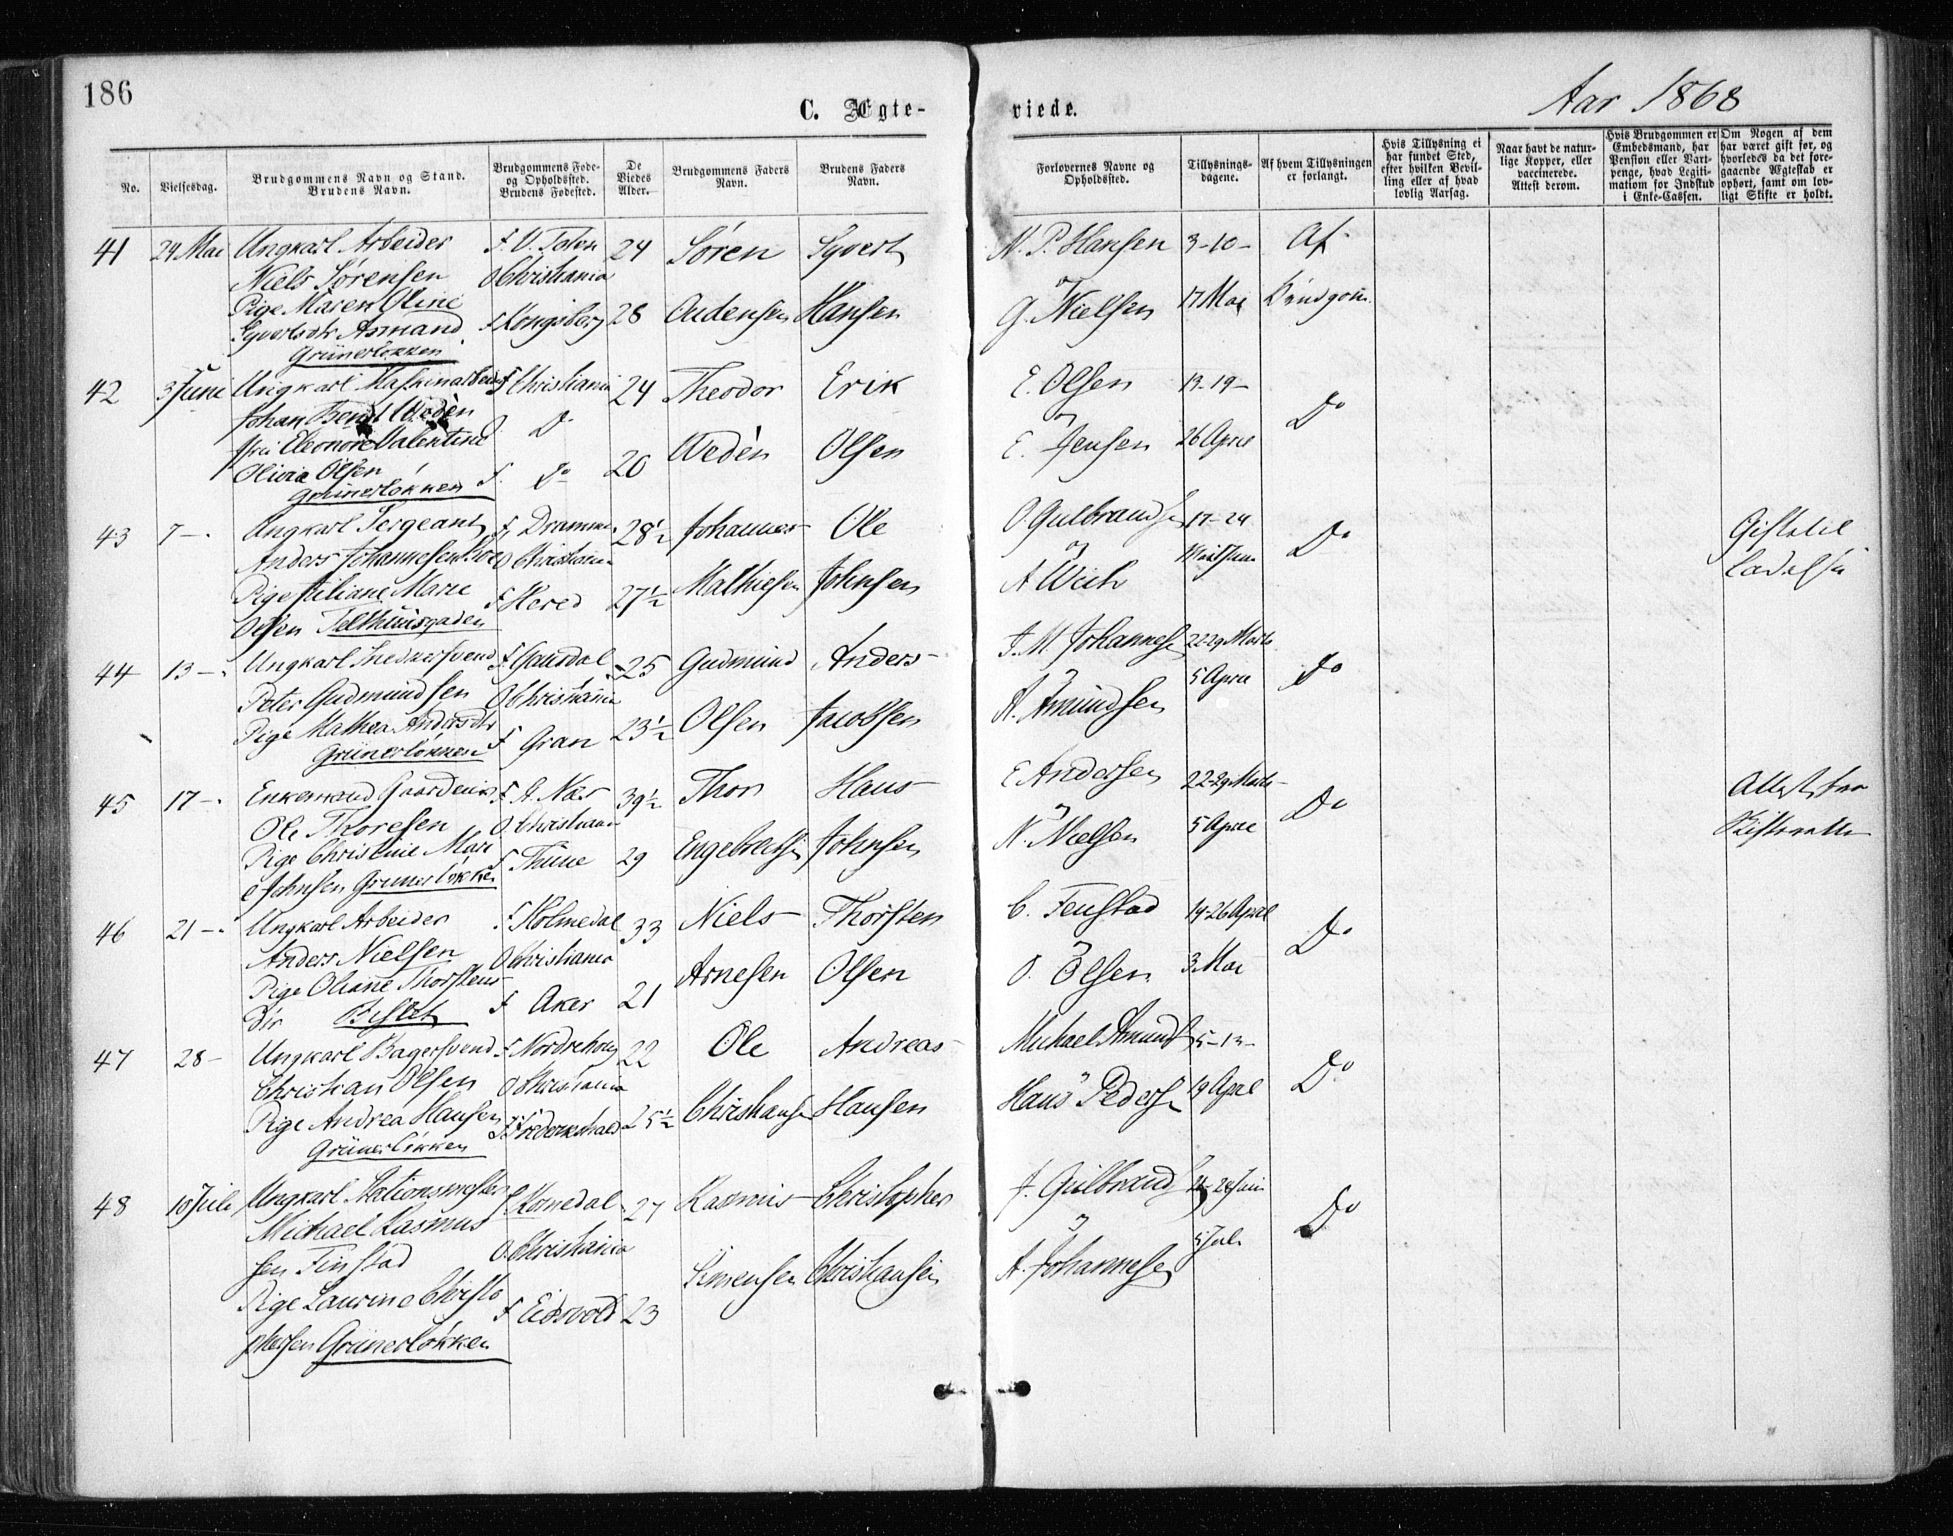 186
C. Ægte-
viede.
Aar 1868
No.
Vielsesdag.
Brudgommens Navn og Stand.
Brudens Navn.
Brudgommens Føde-
og Opholdssted.
Brudens Fødested.
De
Viedes
Alder.
Brudgommens Faders
Navn.
Brudens Faders
Navn.
Forlovernes Navne og
Opholdssted.
Tillysnings-
dagene.
Af hvem Tillysningen
er forlangt.
Hvis Tillysning ei
har fundet Sted,
efter hvilken Bevil-
ling eller af hvad
lovlig Aarsag.
Naar havt de natur-
lige Kopper, eller
vaccinerede.
Attest derom.
Hvis Brudgommen er
Embedsmand, har
Pension eller Vart-
penge, hvad Legiti-
mation for Indskud
i Enke-Cassen.
Om Nogen af dem
har været gift før, og
hvorledes da det fore-
gaaende Ægteskab er
ophørt, samt om lov-
ligt Skifte er holdt.
41 24 Mai Ungkarl Arbeider F. V. Toten 24 Søren Syvert N. P. Hansen 3-10- Af
Niels Sørensen O Christiania
Pige Maren Oline F Kongsberg 28 Audensen Hansen G. Nielsen 17 Mai Brudgom.
Syvertsdtr Asmand
Grünerløkken
42 3 Juni Ungkarl Maskinarbeid F Christiania 24 Theodor Erik E. Olsen 19-
Johan Bernt Wedèn O. Do
Eleonore Valentine Wedèn Olsen E. Jensen 26 April Do
Olivia Olsen F. Do 20
Grünerløkken
43 7 - Ungkarl Sergeant F. Drammen 28½ Johannes Ole O. Gulbrands 17-24
Anders Johannesen O Christiania Do
Pige Juliane Marie F Hered 27½ Mathiesen Johnsen A
Olsen Telthusgaden
44 13 - Ungkarl Snedkersvend F. Gausdal 25 Gudmund Anders J. M. Johannes 22-29 Marts
Peter Gudmundsen O Christiania 5 April Do
Pige Mathea Andersdtr F Gran 23½ Olsen Jacobsen A. Amundsen
Grünerløkken
45 17 - Enkemand F. A. Næs 39½ Thor Hans E Andersen 22-29 Marts
Ole Thoresen O. Christiania Do
Pige Christine Mari F Thune 29 Engebretsen Johnsen N. Nielsen 5 April
Johnsen Grünerløkken
46 21 - Ungkarl Arbeider F Holmedal 33 Niels Thorsten C. Fenstad 19-26 April
Anders Nielsen O Christiania Do
Pige Oliane Thorstens F Aker 21 Arnesen Olsen O. Olsen 3 Mai
Dtr
47 28 - Ungkarl Bagersvend F. Nordrehoug 22 Ole Andreas Michael Amunds 5-12-
Christian Olsen O Christiania Do
Pige Andrea Hansen F. Frederikshald 25½ Christiansen Hansen Hans Peders 19 April
Grünerløkken
48 10 Juli Ungkarl Stationsmester F. 27 Rasmus Christopher J. Gulbrands 28 Juni
Michael Rasmus
sen Finstad O. Christiania 5 Juli Do
Pige Laurine Christo F Eidsvold 23 Simensen Christiansen A. Johannesen
phersen Grünerløkken